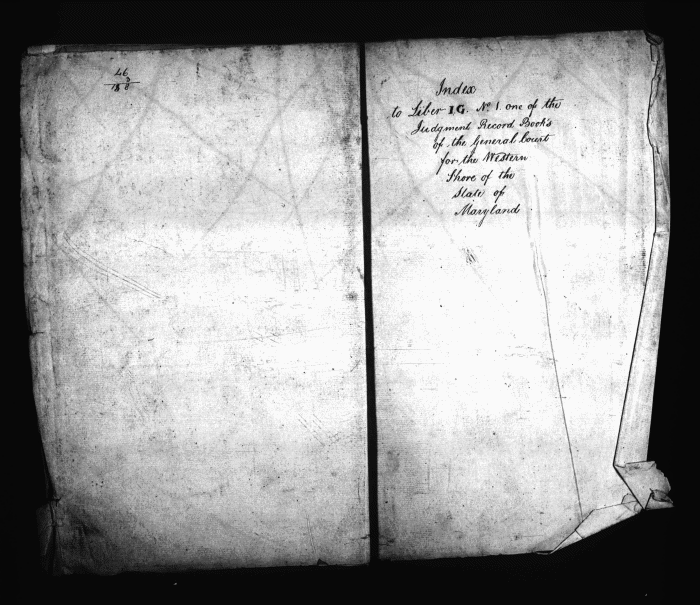 46
Index
to Liber IG. No 1. one of the
Judgment Record Book's
of the General Court
for the Western
Shore of the
State of
Maryland